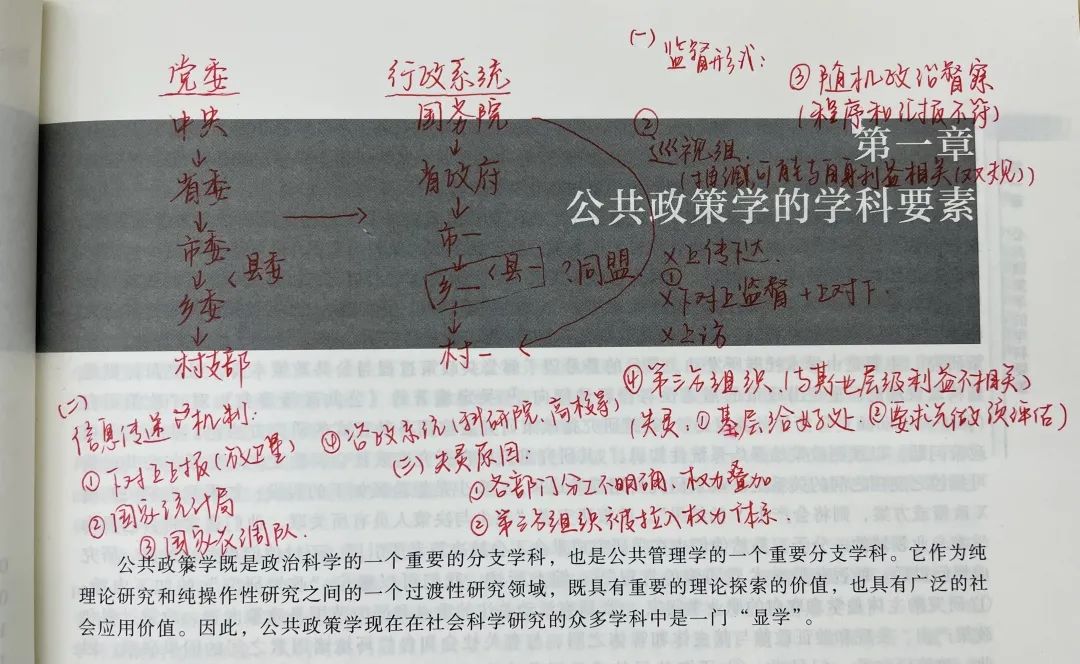 党委
中央
↓
省委
↓
市委
↓ 〈县委
乡委
↓
村支部
→
行政系统
国务院
↓
省政府
↓
市一
↓
乡一 〈县一 ?同盟
↓
村一
(一) 监督形式:
③ 随机政治督察
(程序和汇报不符)
②
巡视组
可能与自身利益相关(双规))
第一章
公共政策学的学科要素
×上传下达.
①
×下对上监督+上对下.
×上访
④ 第三方组织.(与其他层级利益不相关)
(失灵:①基层给好处 ②要求先做预评估)
(二)
信息传递 机制:
① 下对上上报(放卫星)
② 国家统计局
③ 国家
④ 咨政系统(科研院、高校等)
(三) 失灵原因:
① 各部门分工不明确,权力叠加
② 第三方组织被拉入权力体系.
公共政策学既是政治科学的一个重要的分支学科，也是公共管理学的一个重要分支学科。它作为纯
理论研究和纯操作性研究之间的一个过渡性研究领域，既具有重要的理论探索的价值，也具有广泛的社
会应用价值。因此，公共政策学现在在社会科学研究的众多学科中是一门“显学”。